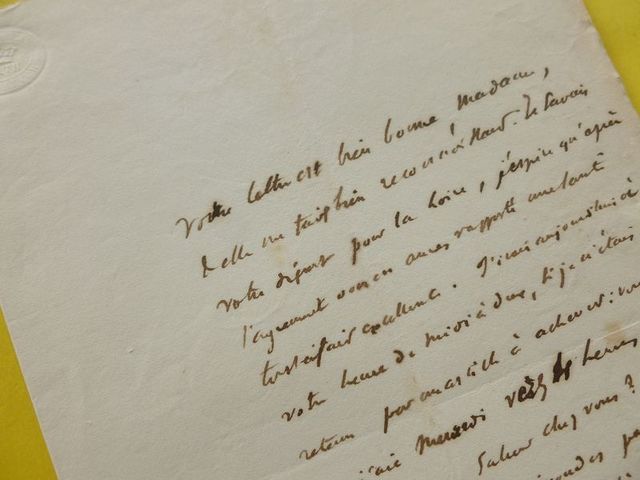 Votre lettre est bien bonne, Madame,
& elle me fait bien reconnaissant. Je savais
votre départ pour la Loire, j'espère qu'après
l'agrément vous en aurez rapporté une santé
tout à fait excellente. J'irais aujourd'hui à
votre heure de midi à deux, si je n'étais
retenu par un article à achever : vous
mercredi vers heures
chez vous ?